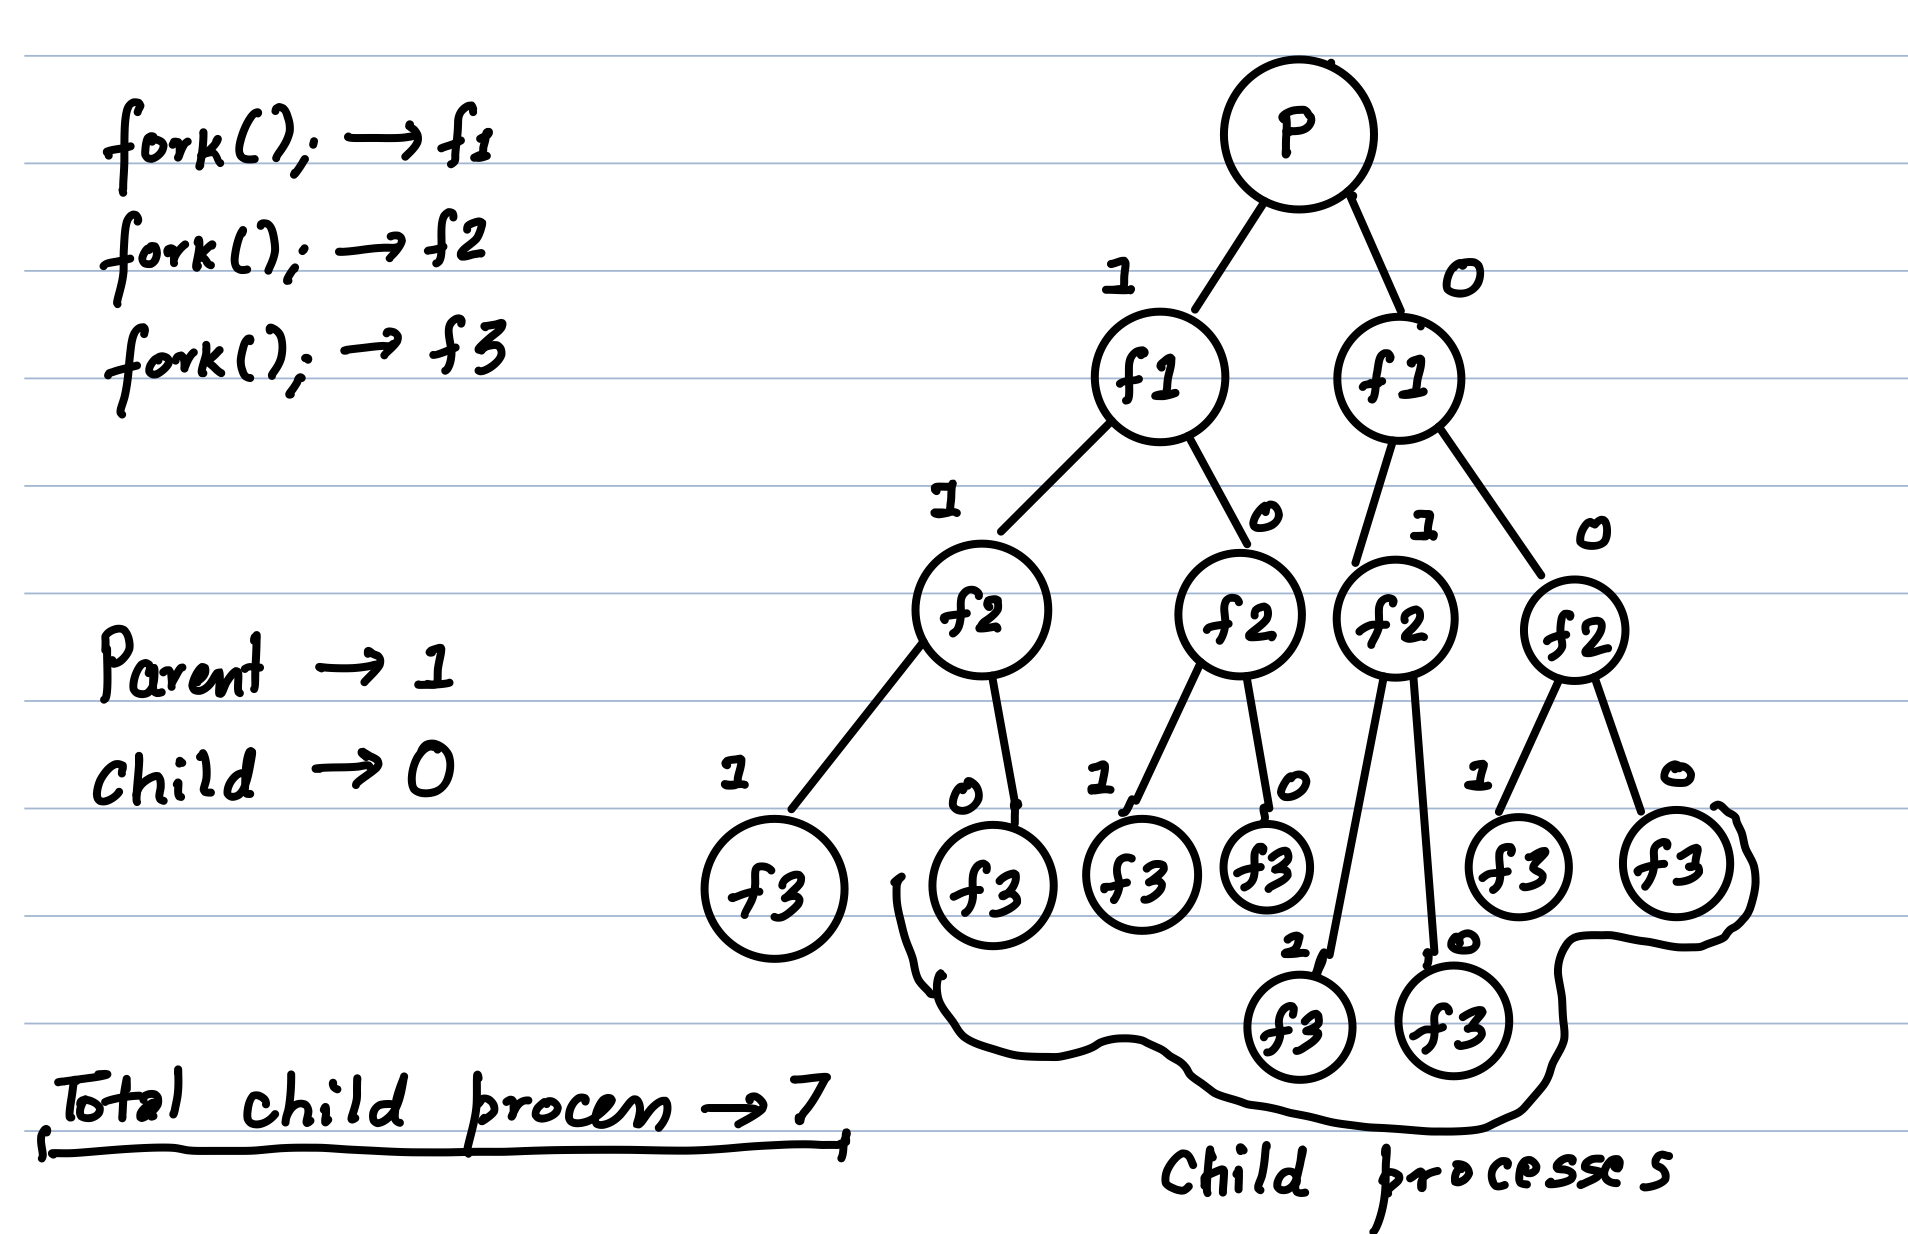 fork(); → f1
fork(); → f2
fork(); → f3
Parent → 1
child → 0
Total child process → 7
P
1 0
f1 f1
1 0 1 0
f2 f2 f2 f2
1 0 1 0 1 0
f3 f3 f3 f3 f3 f3
1 0
f3 f3
Child processes